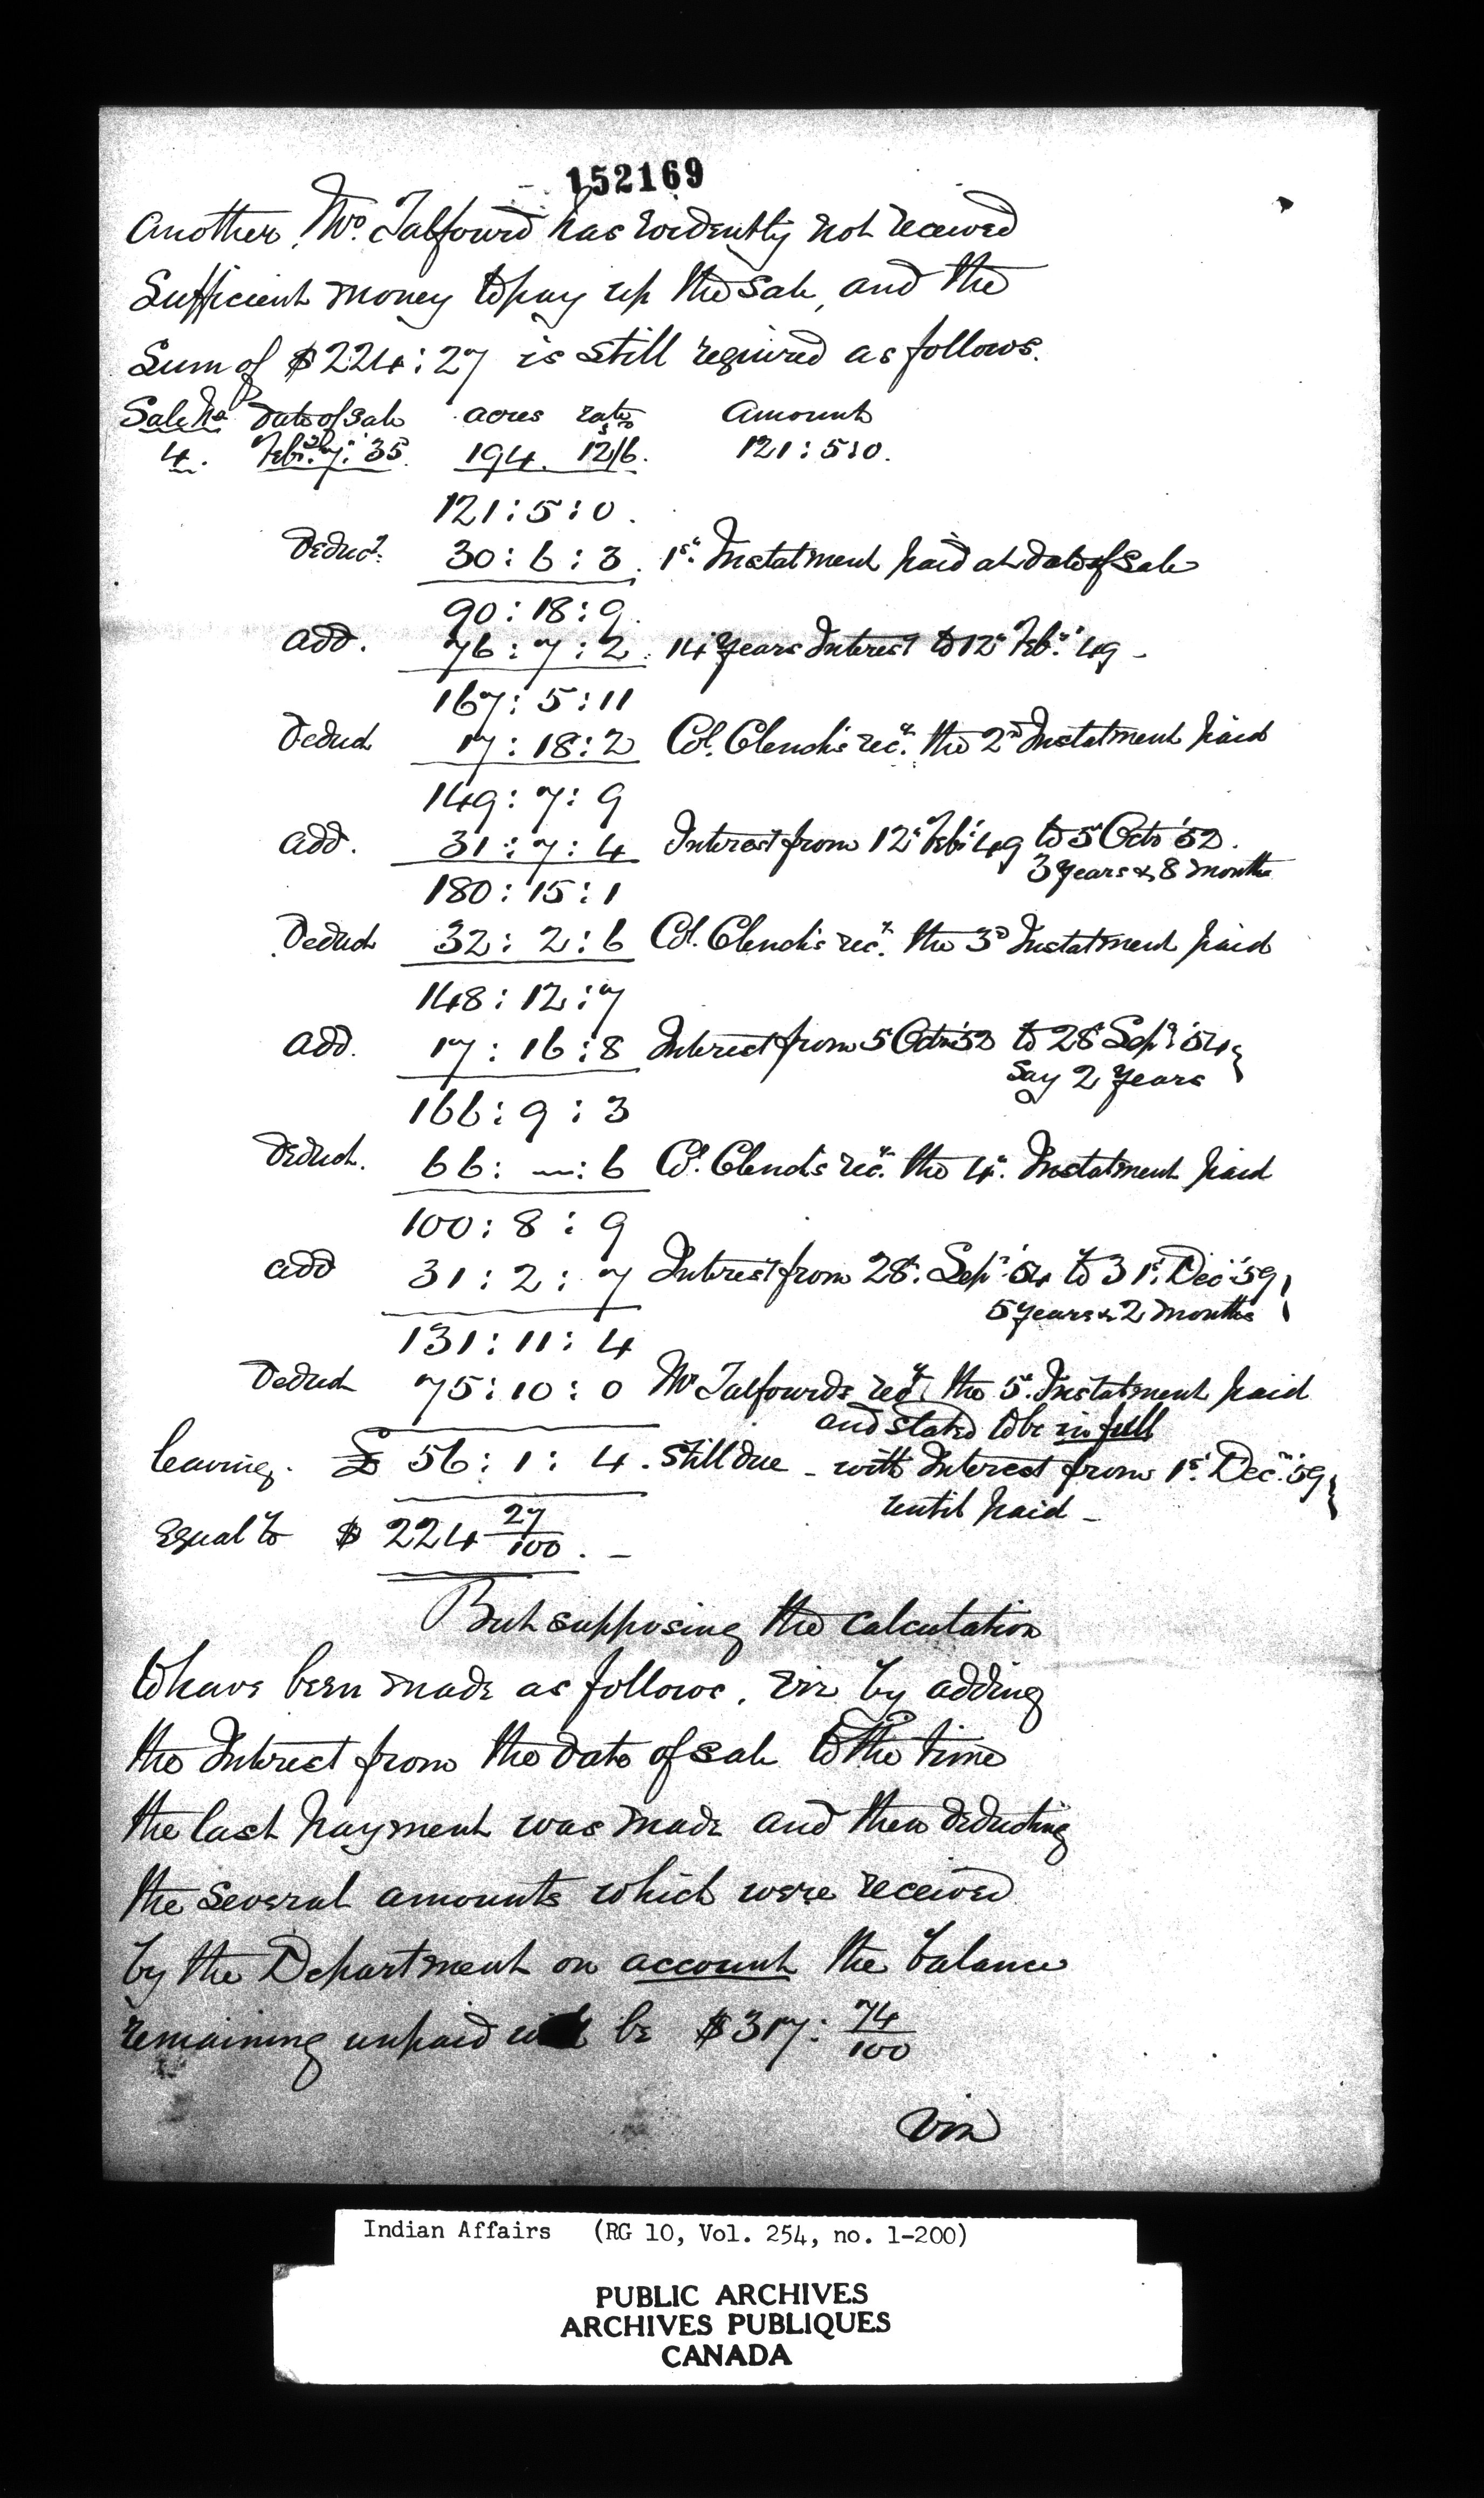 152169
Another, Mr. Talfourd has evidently not received
Sufficient money to pay up the Sale, and the
Sum of $224:27 is still required as follows.
Sale No. Date of Sale acres rate Amount
4. Feb. 35. 194. 12/6. 121:5:0.
121:5:0.
Deduct. 30:6:3. 1st. Instalment paid at date of Sale
90:18:9.
add. 76:7:2. 14 Years Interest to 12 Feb. '49 -
167:5:11
Deduct 17:18:2 Col. Clench's rect. the 2d Instalment paid
149:7:9
add. 31:7:4 Interest from 12 Feb. '49 to 5 Octr '52.
3 Years & 8 months
180:15:1
Deduct 32:2:6 Col. Clench's rect. the 3d Instalment paid
148:12:7
add. 17:16:8 Interest from 5 Octr '52 to 28 Sept '54
Say 2 Years
166:9:3
Deduct. 66:—:6 Col. Clench's rect. the 4. Instalment paid
100:8:9
add 31:2:7 Interest from 28. Sept '54 to 31st. Dec. '59
5 Years & 2 months
131:11:4
Deduct 75:10:0 Mr Talfourd's rect the 5. Instalment paid
and stated to be in full
leaving. £ 56:1:4. Still due - with Interest from 1st. Dec. '59
until paid -
Equal to $ 224 27/100. -
But supposing the calculation
to have been made as follows, viz by adding
the Interest from the date of sale to the time
the last payment was made and then deducting
the Several amounts which were received
by the Department on account the balance
remaining unpaid will be $317: 74/100
viz
Indian Affairs (RG 10, Vol. 254, no. 1-200)
PUBLIC ARCHIVES
ARCHIVES PUBLIQUES
CANADA